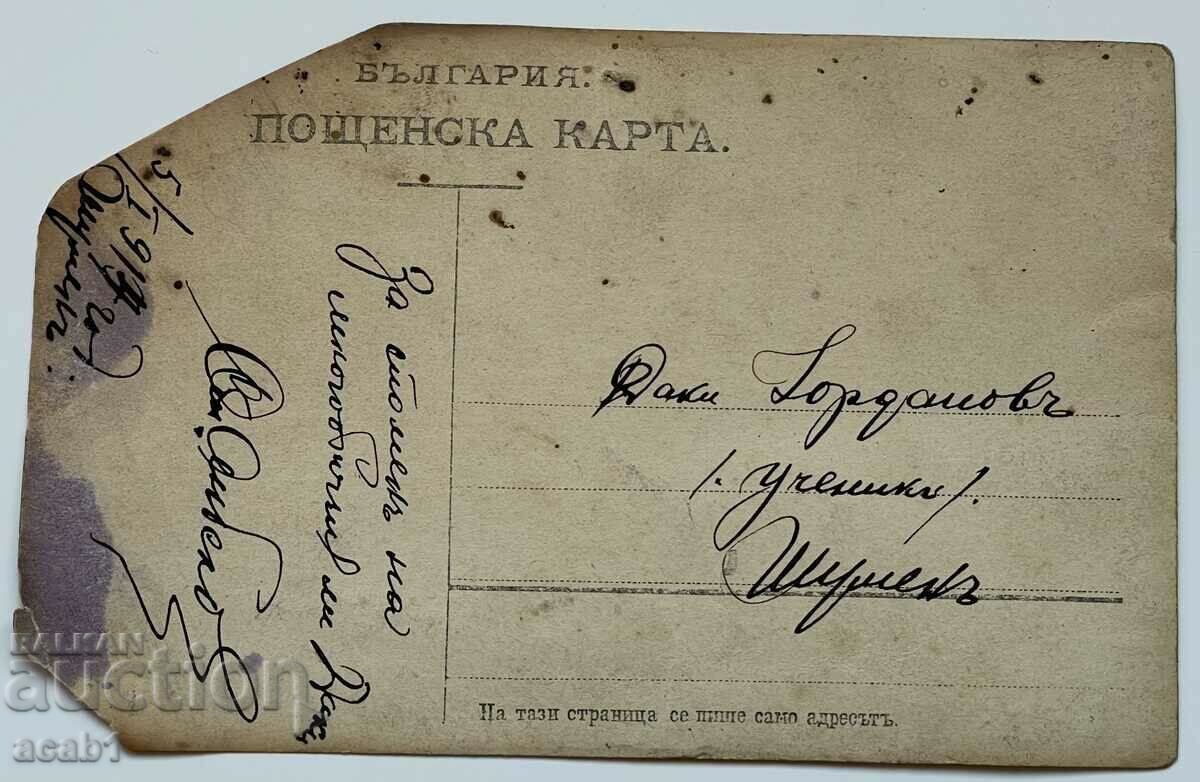 БЪЛГАРИЯ.
ПОЩЕНСКА КАРТА.
5/I 19
Шуменъ.
За споменъ на
многообични ми Даки
Даки Іордановъ
/. ученикъ /.
Шуменъ
На тази страница се пише само адресътъ.
BALKAN
auction
acab1